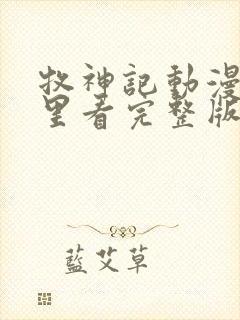 牧神記動漫
里看完整版
藍艾草